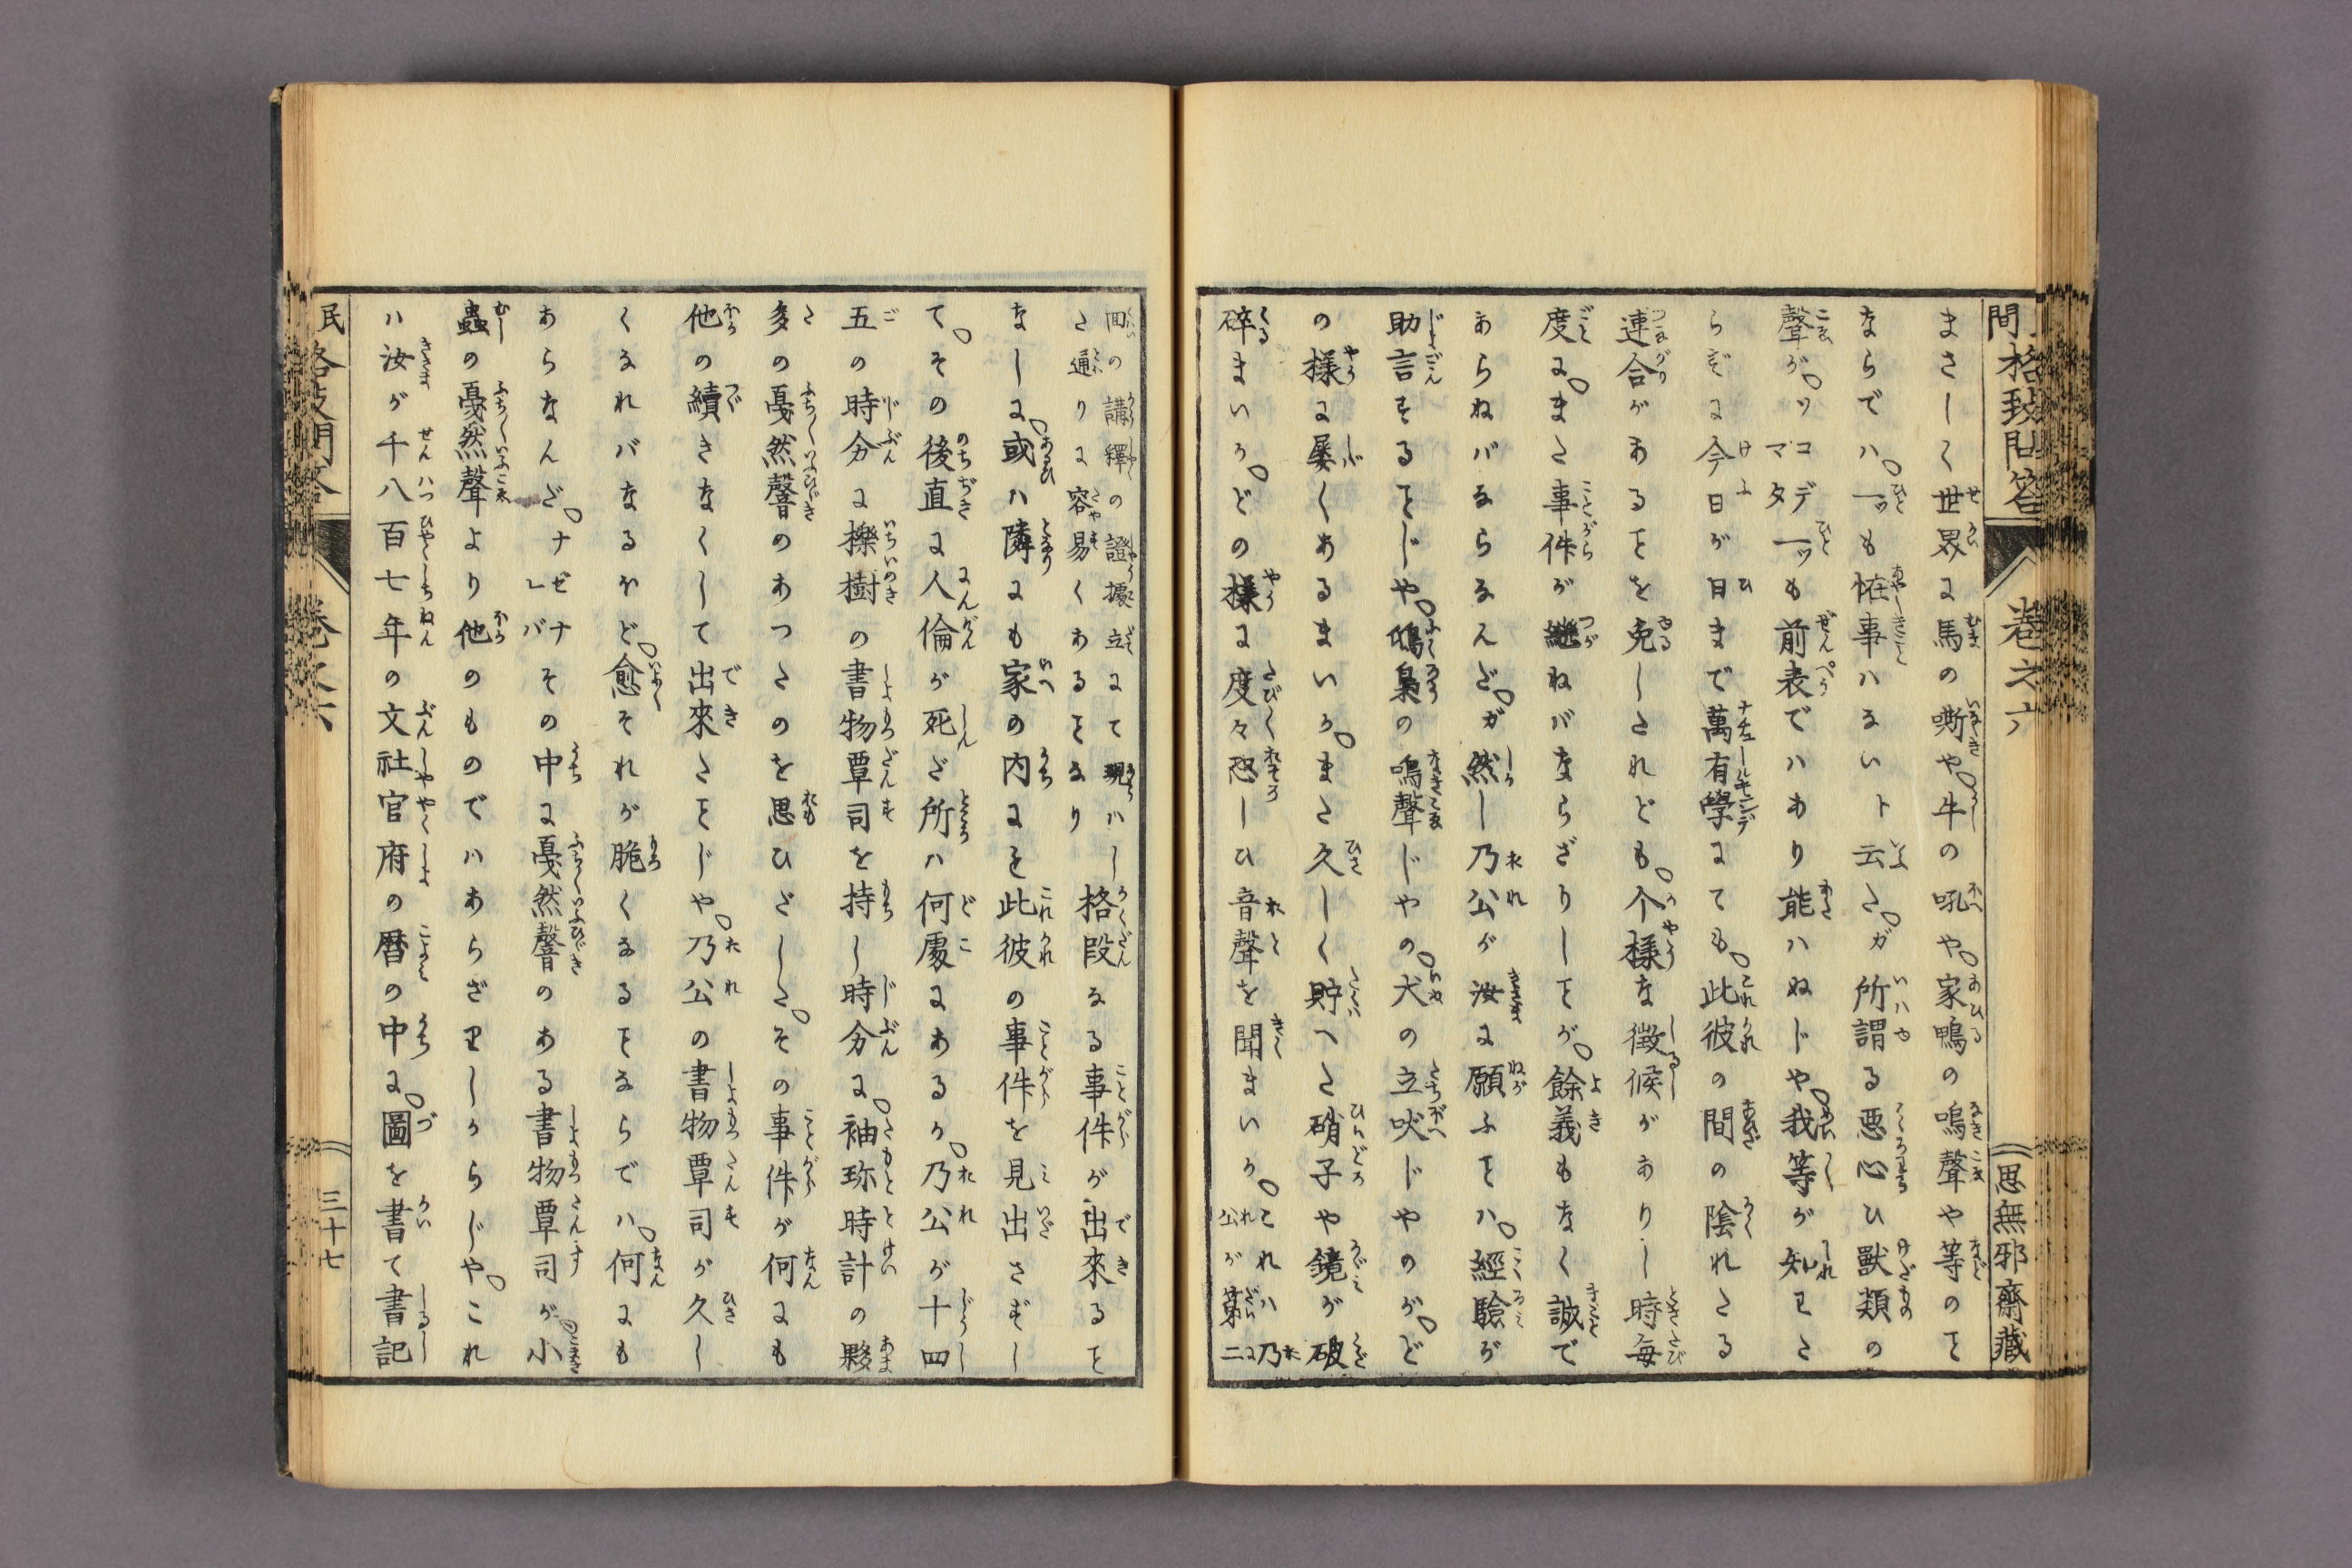 民間格致問答 巻之六 思無邪齋藏
まさしく世界に馬の嘶や牛の吼や家鴨の鳴聲や等のこと
ならでハ一ッも恠事ハないト云た。ガ所謂る悪心ひ獸類の
聲が。ッマコタデデ一ッも前表でハあり能ハぬじや。我等が知ました
らずに今日が日まで萬有學にても。此彼の間の陰れたる
連合があることを免しされども。个様な徴候がありし時毎
度に。また事件が繼ねバならざりしことが。餘義もなく誠で
あらねバならなんだ。ガ然し乃公が汝に願ふことハ。經驗が
助言することじや。鵂梟の鳴聲じやの。犬の立吠じやのが。ど
の様に屡くあるまいか。また久しく貯へた硝子や鏡が破
碎まいか。どの様に度々恐しひ音聲を聞まいか。これハ乃公が第二
回の講釋の證據立にて現ハした通りに容易くあることなり格段なる事件が出來ること
なしに。或ハ隣にも家の内にも此彼の事件を見出さずし
て。その後直に人倫が死だ所ハ何處にあるか。乃公が十四
五の時分に櫟樹の書物覃司を持し時分に。袖珎時計の夥
多の戞然響のあつたのを思ひだした。その事件が何にも
他の續きなくして出來たことじや。乃公の書物覃司が久し
くなれバなるほど。愈それが脆くなることならでハ。何にも
あらなんだ。ナゼナレバその中に戞然響のある書物覃司が。小
蟲の戞然聲より他のものでハあらざりしからじや。これ
ハ汝が千八百七年の文社官府の暦の中に。圖を書て書記
民間格致問答 巻之六 三十七